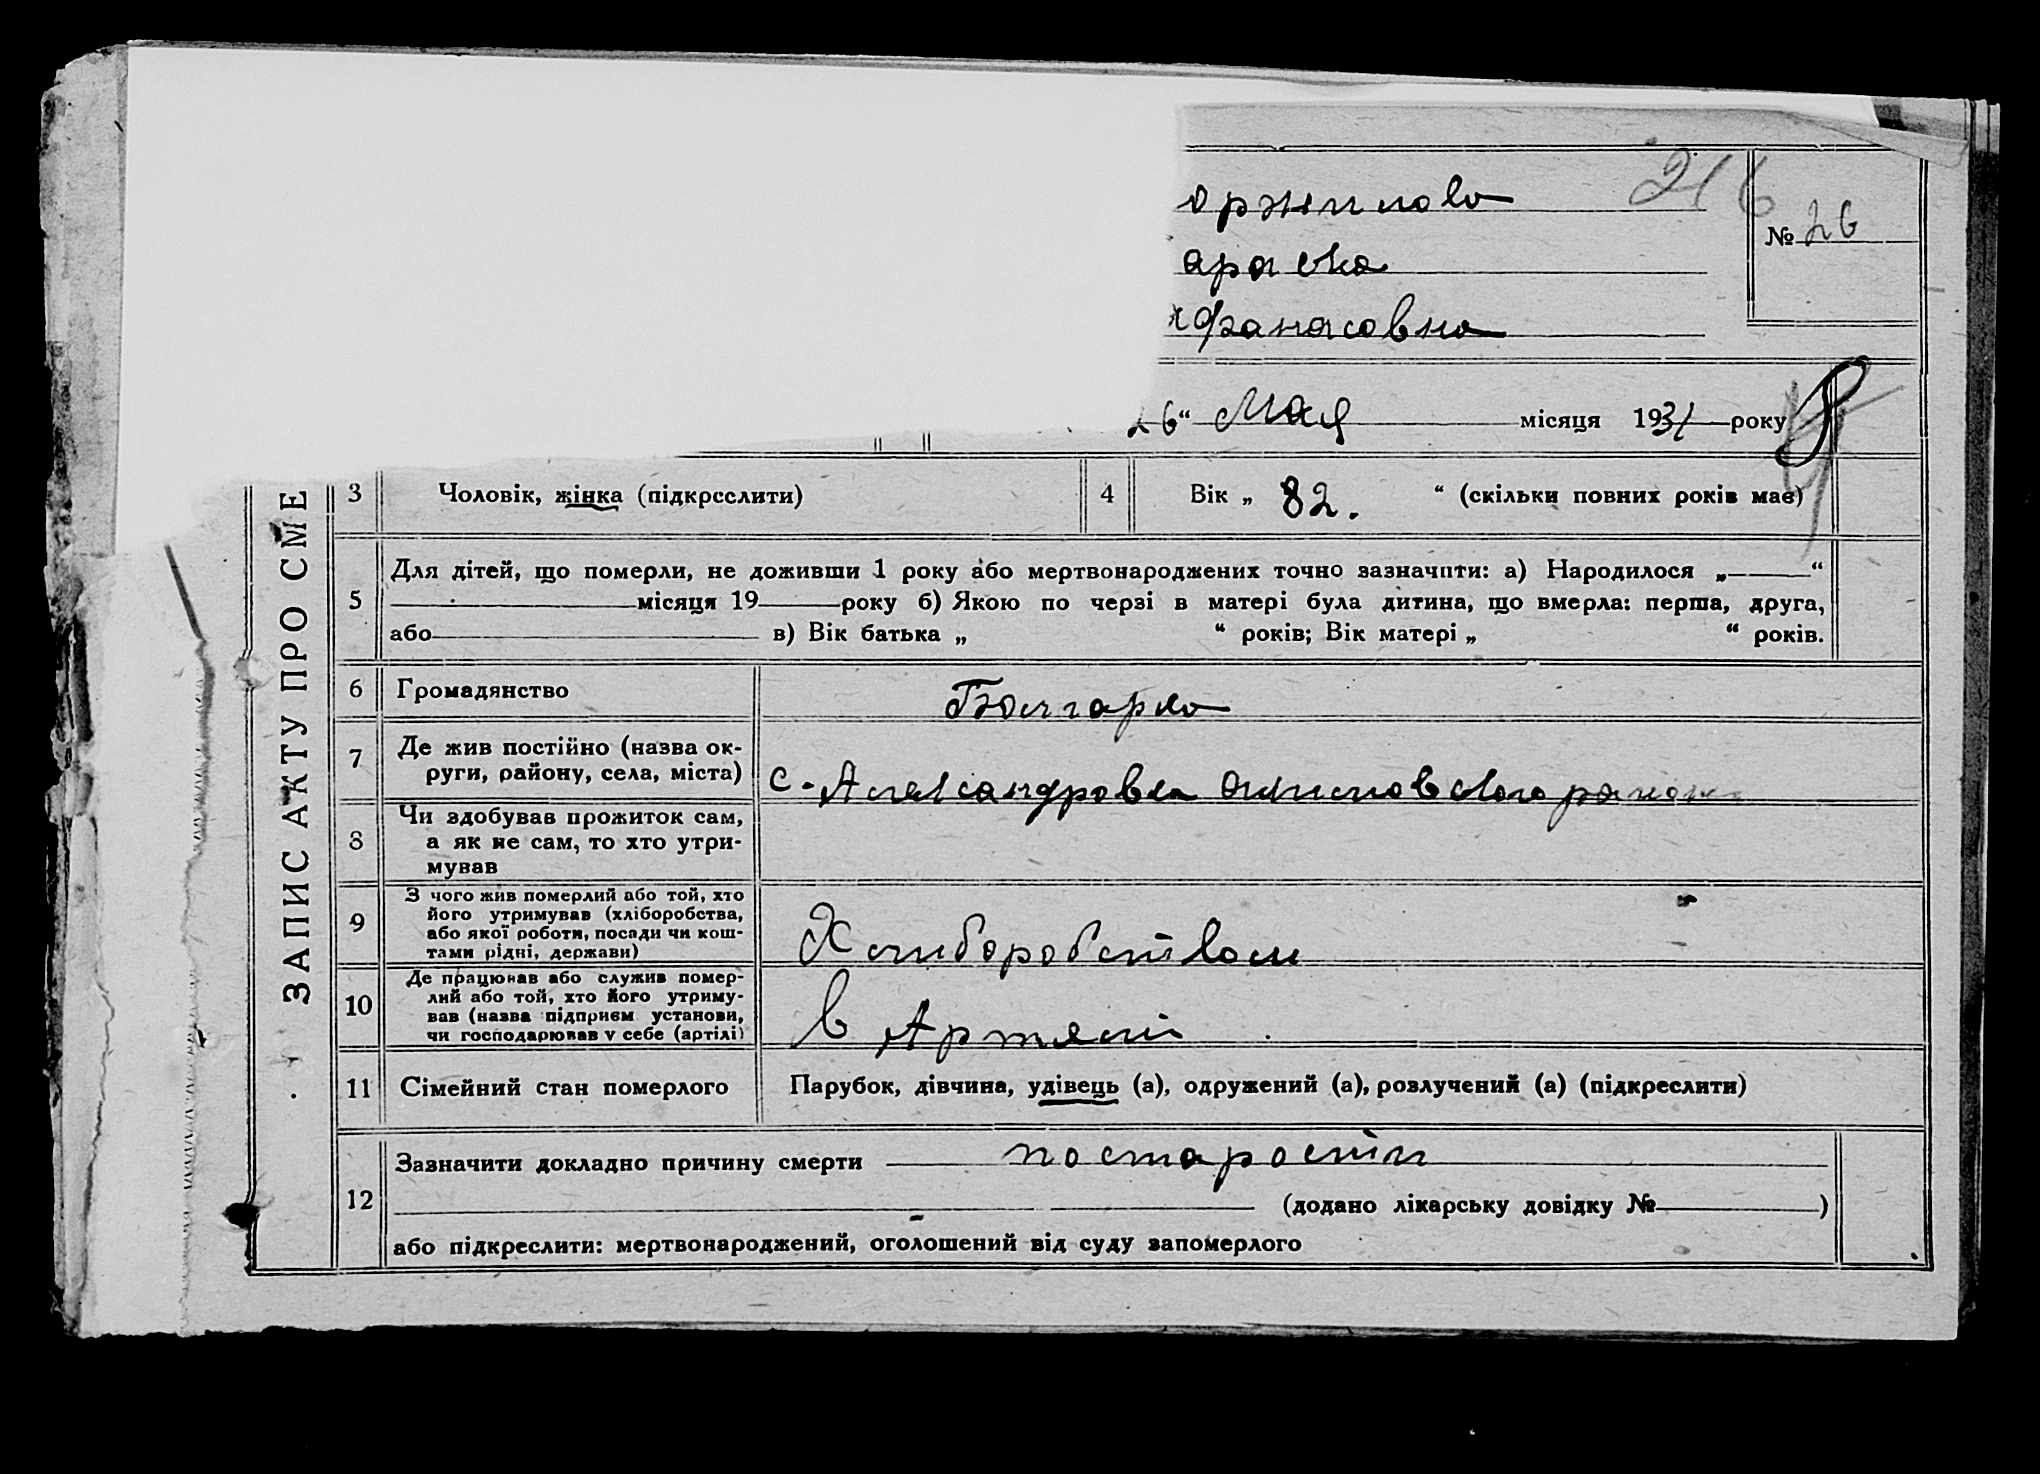 216
оржилова
№ 26
араска
Афанасовна
26“ Мая місяця 1931 року
ЗАПИС АКТУ ПРО СМЕ
3 Чоловік, жінка (підкреслити) 4 Вік „ 82. “ (скільки повних років має)
5 Для дітей, що померли, не доживши 1 року або мертвонароджених точно зазначити: а) Народилося „ “
місяця 19 року б) Якою по черзі в матері була дитина, що вмерла: перша, друга,
або в) Вік батька „ “ років; Вік матері „ “ років.
6 Громадянство Болгарка
7 Де жив постійно (назва ок-
руги, району, села, міста) с. Александровка
8 Чи здобував прожиток сам,
а як не сам, то хто утри-
мував
9 З чого жив померлий або той, хто
його утримував (хліборобства,
або якої роботи, посади чи кош-
тами рідні, держави) Хлиборобством
10 Де працював або служив помер-
лий або той, хто його утриму-
вав (назва підприєм установи,
чи господарював у себе (артілі) в Артели
11 Сімейний стан померлого Парубок, дівчина, удівець (а), одружений (а), розлучений (а) (підкреслити)
12 Зазначити докладно причину смерти постарости
(додано лікарську довідку № )
або підкреслити: мертвонароджений, оголошений від суду запомерлого